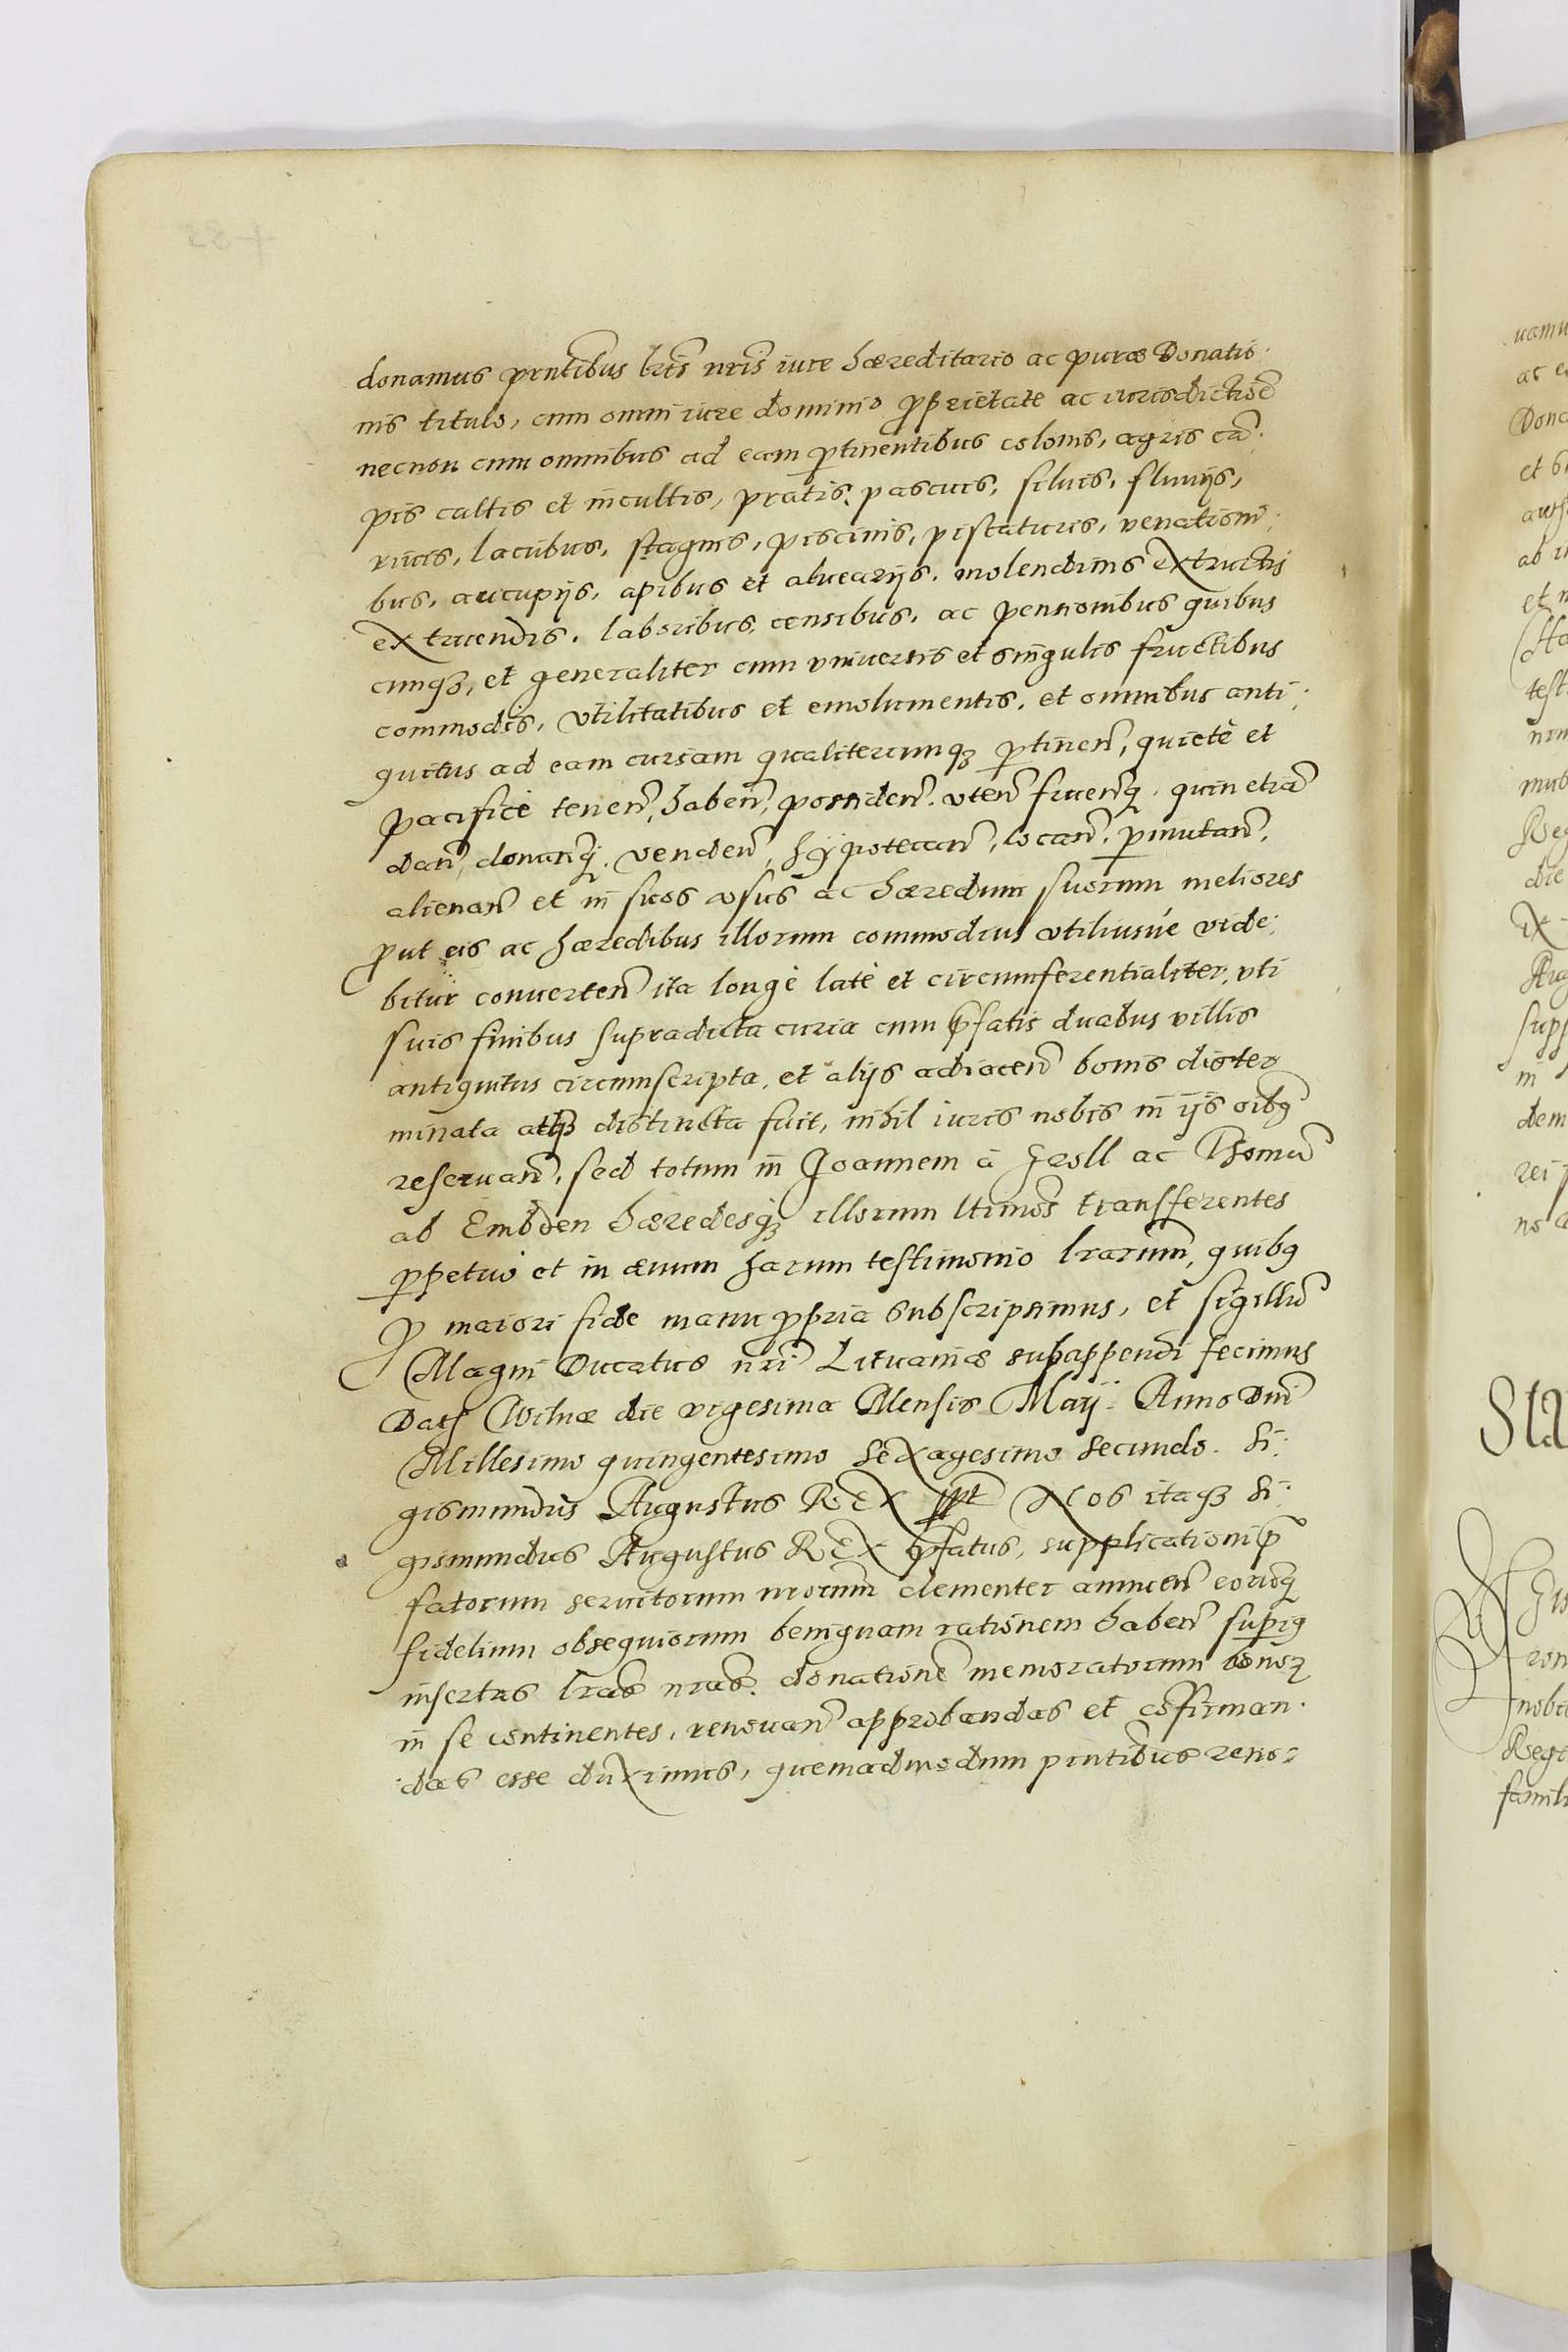 donamus pr̃ntibus lr̃is nr̃is iure hæreditario ac puræ Donatio:
nis titulo, cum omni iure dominio proprietate ac iurisdictiōe
necnon cum omnibus ad eam pertinentibus colonis, agris cā:
pis cultis et incultis, pratis, pascuis, siluis, fluuijs,
riuis, lacubus, stagnis, piscinis, piscaturis, venationi:
bus, aucupijs, apibus et aluearijs, molendinis extructis
extruendis, laboribus, censibus, ac pensionibus quibus
cunqꝫ, et generaliter cum vniuersis et singulis fructibus
commodis, vtilitatibus et emolumentis, et omnibus anti:
quitus ad eam curiam qualitercunqꝫ pertineñ, quietè et
pacificè teneñ, habeñ, possideñ, vteñ frueñqꝫ, quin etiā
dañ, donañqꝫ, vendeñ, hÿpotecañ, locañ, permutañ,
alienañ et in suos vsus ac hæredum suorum meliores
prout eis ac hæredibus illorum commodius vtiliusúe vide:
bitur conuerteñ ita longè latè et circumferentialiter, vti
suis finibus supradicta curia cum præfatis duabus villis
antiquitus circumscripta, et alijs adiaceñ bonis dister
minata atqꝫ distincta fuit, nihil iuris nobis in ijs oibꝰ
reseruañ, sed totum in Joannem à Groll ac Thomā
ab Embden hæredesqꝫ illorum ltimos transferentes
perpetuò et in æuum harum testimonio lrarum, quibꝰ
pro maiori fide manu propria subscripsimus, et sigillū
Magni Ducatus nr̃i Lituaniæ subappendi fecimus
Dat Wilnæ die vigesima Mensis Maij. Anno Dn̄i
Millesimo quingentesimo sexagesimo secundo. Si:
gismundus Augustus REX sspt Nos itaqꝫ Si:
gismundus Augustus REX præfatus, supplicationi præ
fatorum seruitorum nrorum clementer annueñ eorūqꝫ
fidelium obsequiorum benignam rationem habeñ superiꝰ
insertas lras nras. donationē memoratorum bonoꝝ
in se continentes, renouañ approbandas et cōfirman:
das esse duximus, quemadmodum pn̄tibus reno: